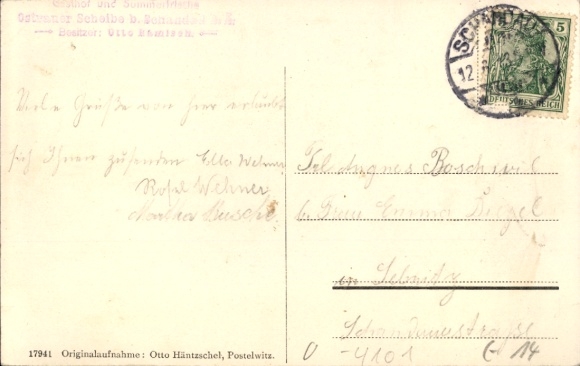 Gasthof und Sommerfrische
Ostrauer Scheibe b. Schandau
Besitzer: Otto
SCHANDAU
12
5
DEUTSCHES REICH
Viele Grüße von hier erlaubt
sich Ihnen zusenden Ella Wehner
Rosel Wehner
Martha Kusche
Frl. Agnes Boschwil
b. Frau Emma Siegel
in Sebnitz
Schandauerstrasse
17941 Originalaufnahme: Otto Häntzschel, Postelwitz.
0 -4101 14